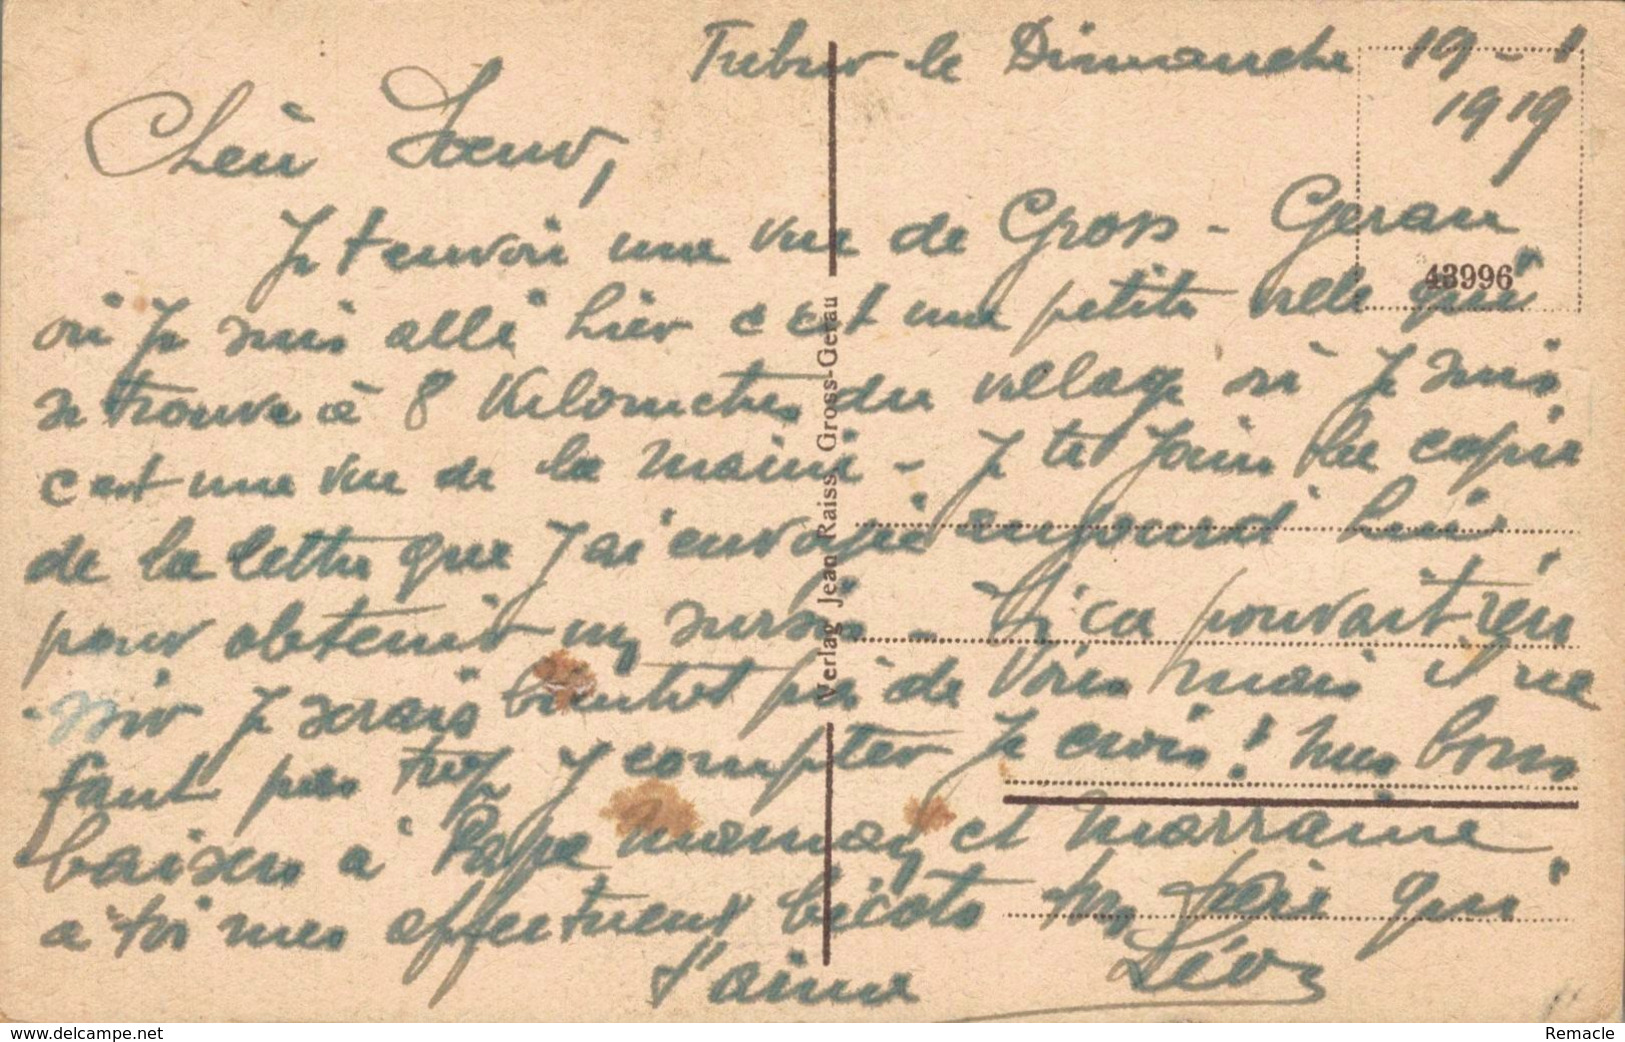 Trebur le Dimanche 19-1
1919
Cheri Sœur,
Je t'envoi une vue de Gross-Gerau
43996
ou je suis allé hier c'est une petite ville qui
se trouve à 8 Kilometres du village où je suis
c'est une vue de la Mairie - Je te join la copie
de la lettre que j'ai envoyé aujourd'hui
pour obtenir un sursis - Si ça pouvait réu
-ssir je serais bientot pres de vous mais il ne
faut pas trop y compter je crois! mes bons
baisers à Papa maman et Marraine
a toi mes affectueux bécots ton frère qui
t'aime Léon
Verlag Jean Raiss Gross-Gerau
www.delcampe.net
Remacle